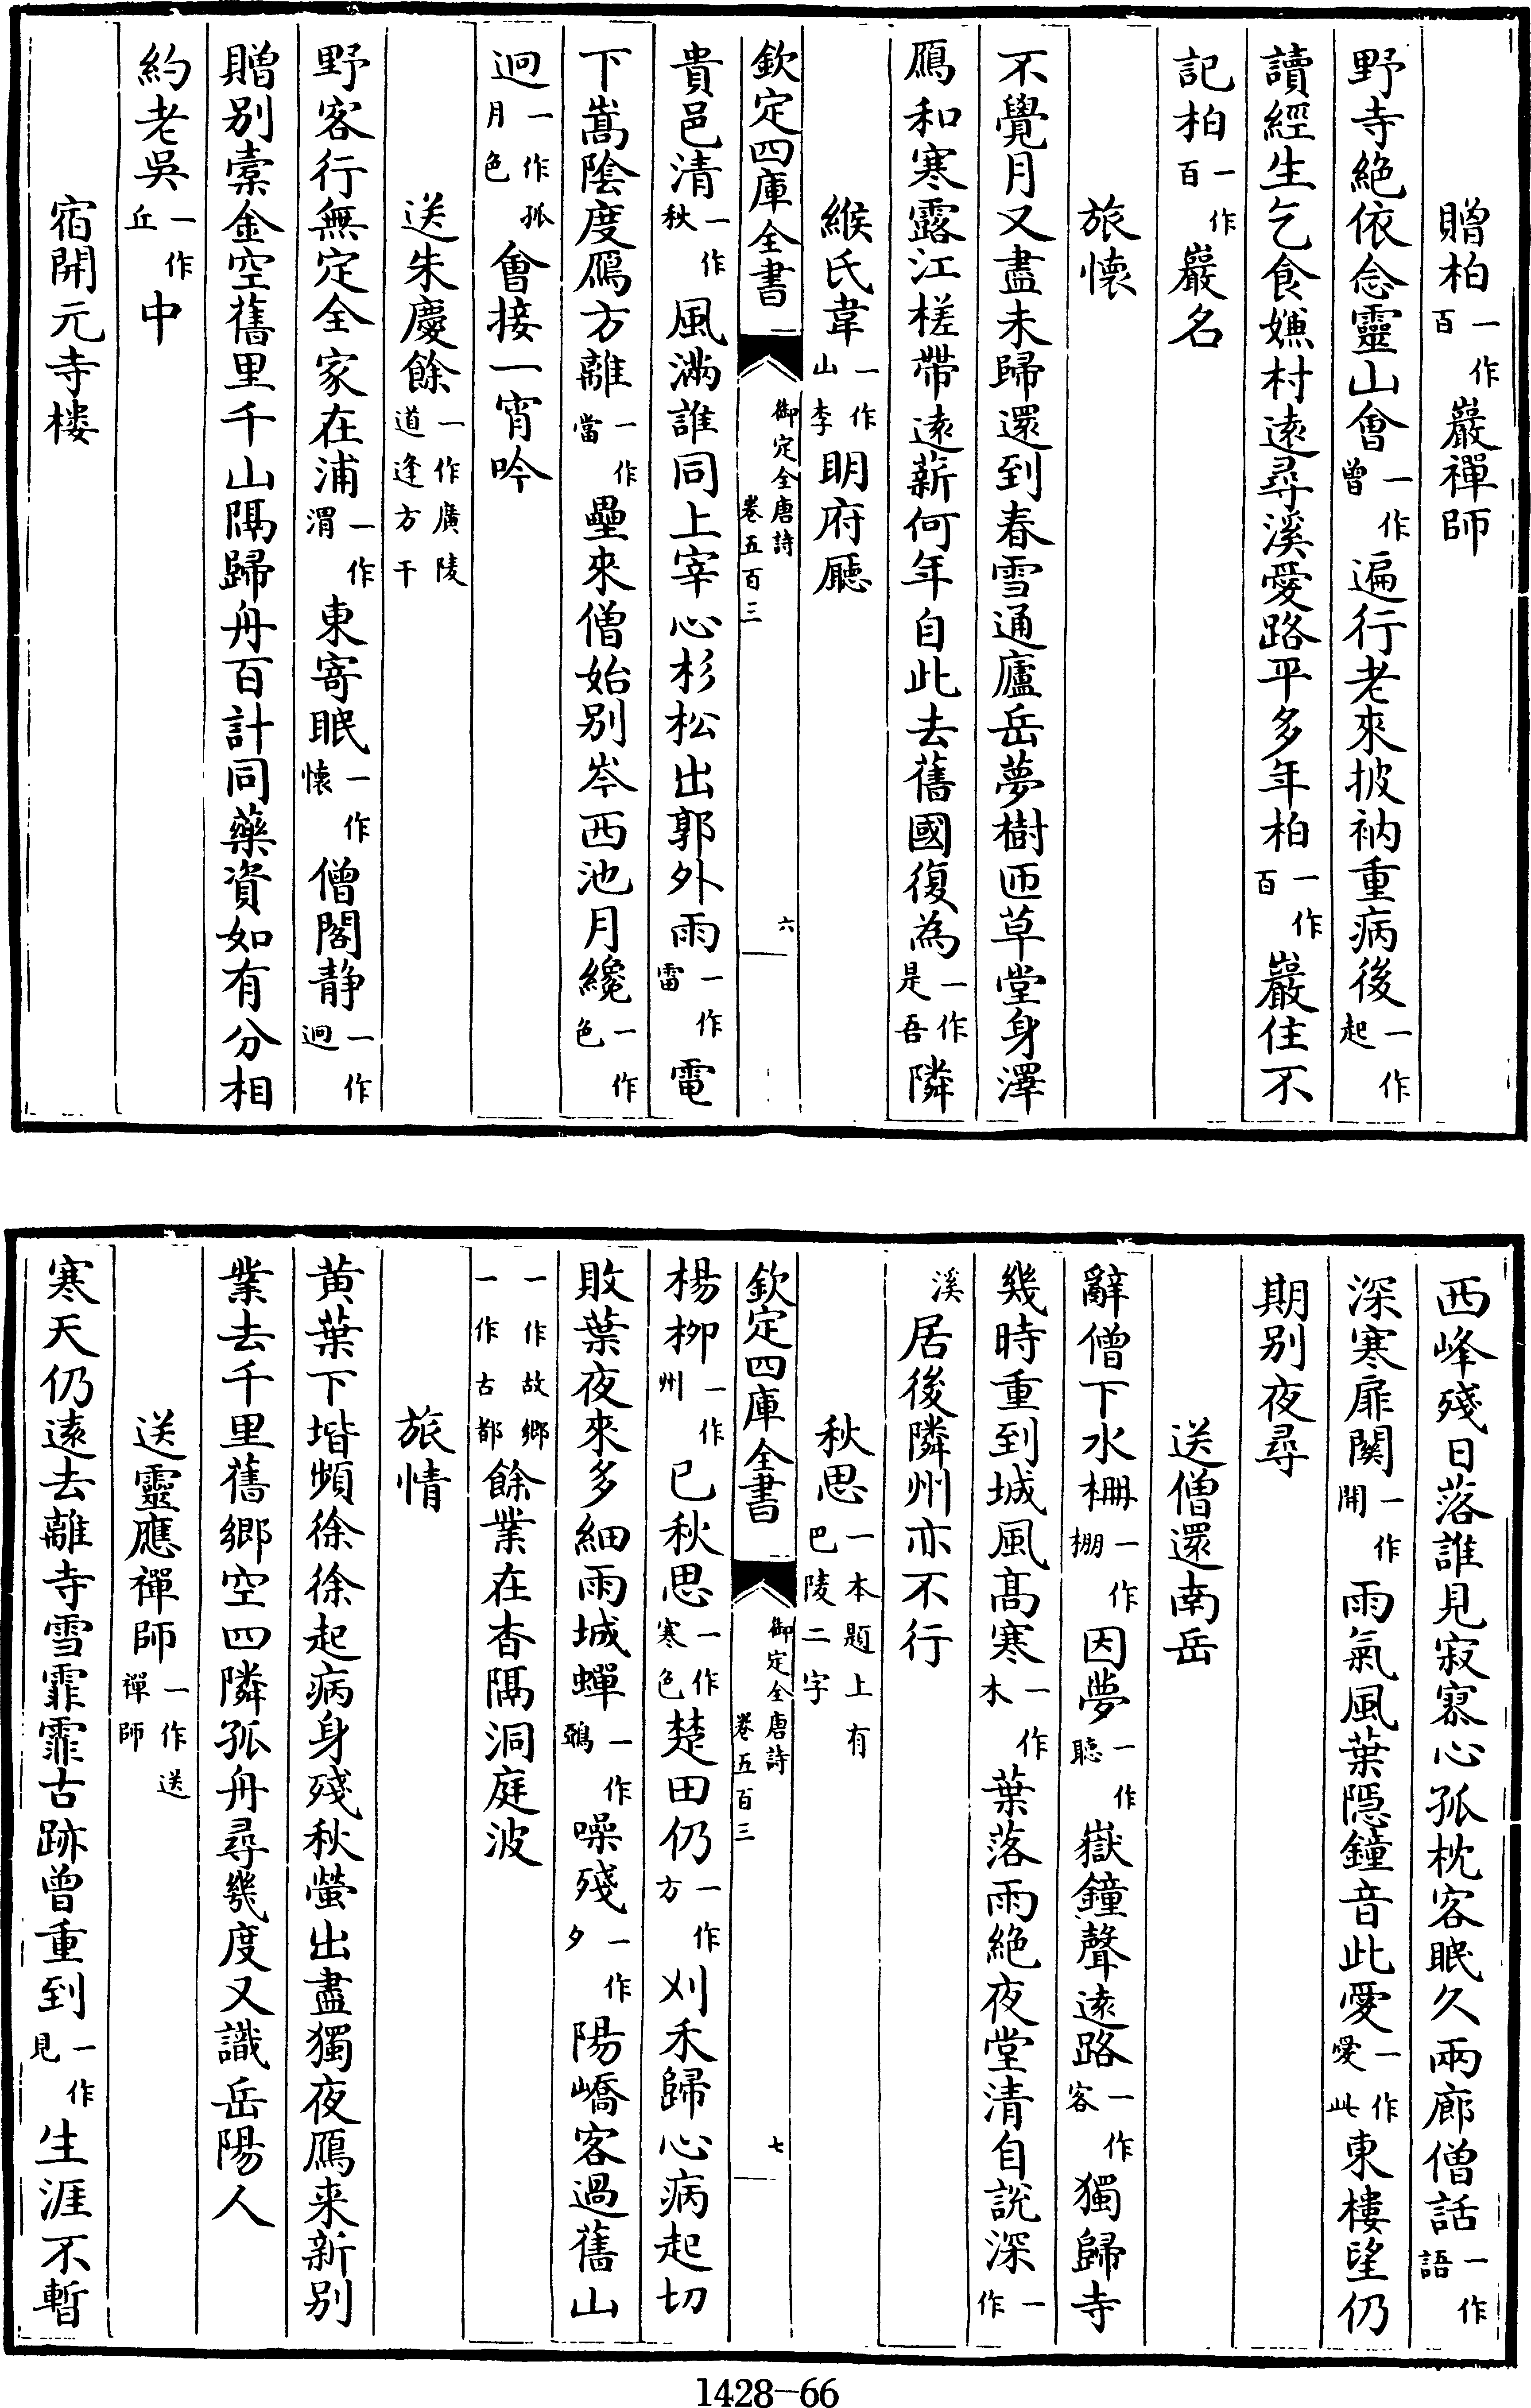 贈柏一作百巖禪師
野寺絶依念靈山會一作曾遍行老來披衲重病後一作起
讀經生乞食嫌村逺尋溪愛路平多年柏一作百巖住不
記柏一作百巖名
旅懷
不覺月又盡未歸還到春雪通廬岳夢樹匝草堂身澤
鴈和寒露江槎帶逺薪何年自此去舊國復為一作是吾隣
緱氏韋一作山李明府廳
欽定四庫全書
御定全唐詩
卷五百三
六
貴邑清一作秋風滿誰同上宰心杉松出郭外雨一作雷電
下嵩陰度鴈方離一作當壘來僧始别岑西池月纔一作色
迥一作孤月色會接一宵吟
送朱慶餘一作廣陵道逢方干
野客行無定全家在浦一作渭東寄眠一作懷僧閣静一作迥
贈别橐金空舊里千山隔歸舟百計同藥資如有分相
約老吳一作丘中
宿開元寺楼
西峰殘日落誰見寂寞心孤枕客眠久兩廊僧話一作語
深寒扉闗一作開雨氣風葉隱鐘音此愛一作愛此東樓望仍
期别夜尋
送僧還南岳
辭僧下水柵一作棚因夢一作聽嶽鐘聲逺路一作客獨歸寺
幾時重到城風髙寒一作木葉落雨絶夜堂清自説深一作
溪居後隣州亦不行
秋思一本題上有巴陵二字
欽定四庫全書
御定全唐詩
卷五百三
七
楊柳一作州已秋思一作寒色楚田仍一作方刈禾歸心病起切
敗葉夜來多細雨城蟬一作鵶噪殘一作夕陽嶠客過舊山
一作故鄉一作古都餘業在杳隔洞庭波
旅情
黄葉下堦頻徐徐起病身殘秋螢出盡獨夜鴈来新别
業去千里舊鄉空四隣孤舟尋幾度又識岳陽人
送靈應禪師一作送禪師
寒天仍逺去離寺雪霏霏古跡曾重到一作見生涯不暫
1428—66